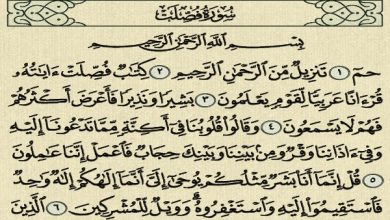 سُورَةُ فُصِّلَتْ
بِسْمِ اللَّهِ الرَّحْمَٰنِ الرَّحِيمِ
حمٓ ١ تَنزِيلٌ مِّنَ الرَّحْمَٰنِ الرَّحِيمِ ٢ كِتَابٌ فُصِّلَتْ ءَايَاتُهُ
قُرْءَانًا عَرَبِيًّا لِّقَوْمٍ يَعْلَمُونَ ٣ بَشِيرًا وَنَذِيرًا فَأَعْرَضَ أَكْثَرُهُمْ
فَهُمْ لَا يَسْمَعُونَ ٤ وَقَالُوا قُلُوبُنَا فِي أَكِنَّةٍ مِّمَّا تَدْعُونَا إِلَيْهِ
وَفِي ءَاذَانِنَا وَقْرٌ وَمِن بَيْنِنَا وَبَيْنِكَ حِجَابٌ فَاعْمَلْ إِنَّنَا عَامِلُونَ
٥ قُلْ إِنَّمَا أَنَا بَشَرٌ مِّثْلُكُمْ يُوحَىٰ إِلَيَّ أَنَّمَا إِلَٰهُكُمْ إِلَٰهٌ وَاحِدٌ
فَاسْتَقِيمُوا إِلَيْهِ وَاسْتَغْفِرُوهُ وَوَيْلٌ لِّلْمُشْرِكِينَ ٦ الَّذِينَ